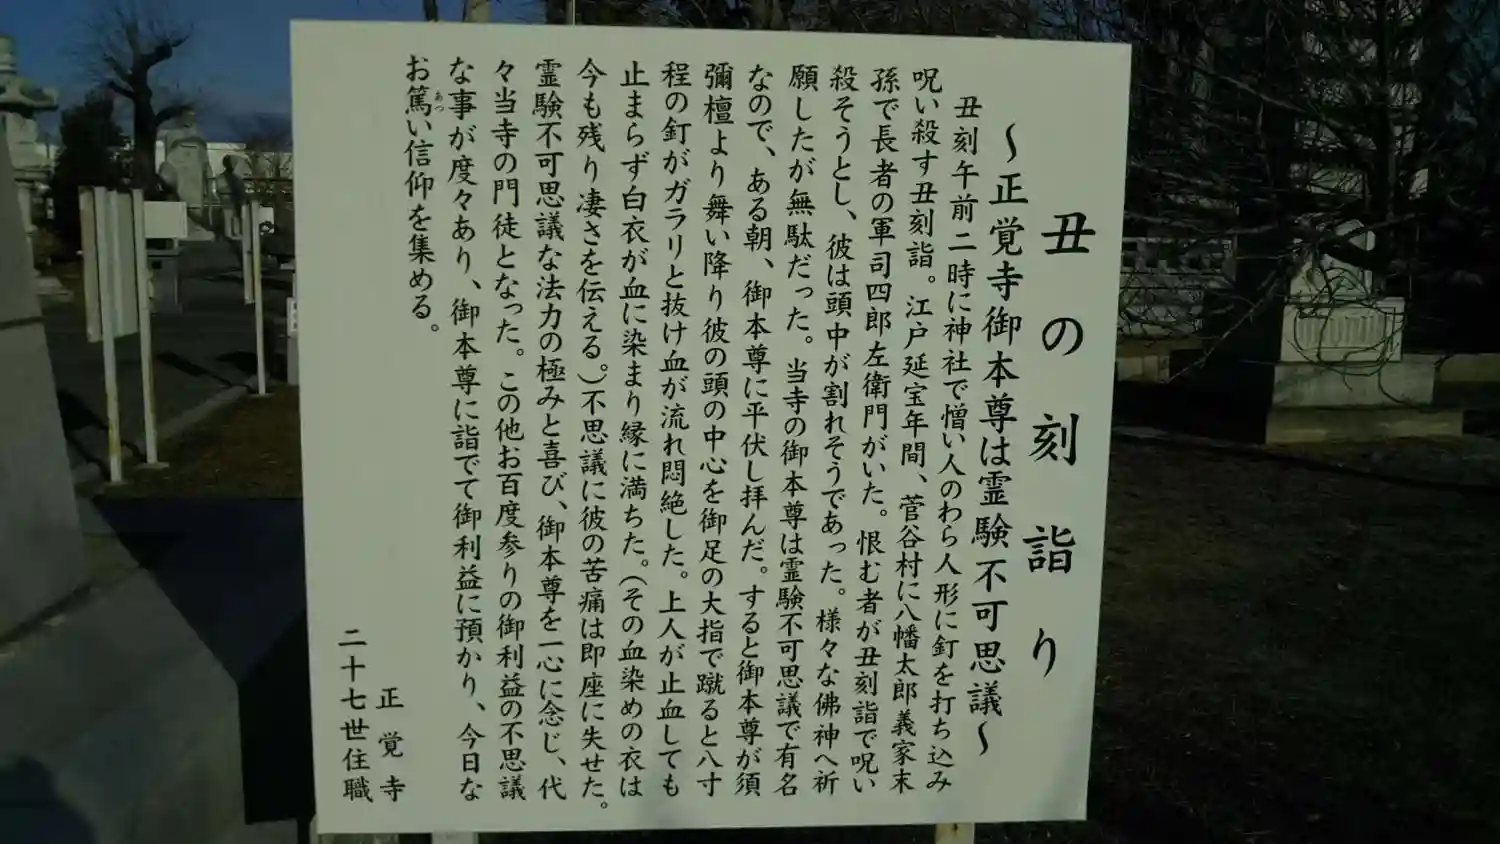 丑の刻詣り
～正覚寺御本尊は霊験不可思議～
丑刻午前二時に神社で憎い人のわら人形に釘を打ち込み
呪い殺す丑刻詣。江戸延宝年間、菅谷村に八幡太郎義家末
孫で長者の軍司四郎左衛門がいた。恨む者が丑刻詣で呪い
殺そうとし、彼は頭中が割れそうであった。様々な佛神へ祈
願したが無駄だった。当寺の御本尊は霊験不可思議で有名
なので、ある朝、御本尊に平伏し拝んだ。すると御本尊が須
彌檀より舞い降り彼の頭の中心を御足の大指で蹴ると八寸
程の釘がガラリと抜け血が流れ悶絶した。上人が止血しても
止まらず白衣が血に染まり縁に満ちた。(その血染めの衣は
今も残り凄さを伝える。)不思議に彼の苦痛は即座に失せた。
霊験不可思議な法力の極みと喜び、御本尊を一心に念じ、代
々当寺の門徒となった。この他お百度参りの御利益の不思議
な事が度々あり、御本尊に詣でて御利益に預かり、今日な
お篤い信仰を集める。
あつ
正覚寺
二十七世住職